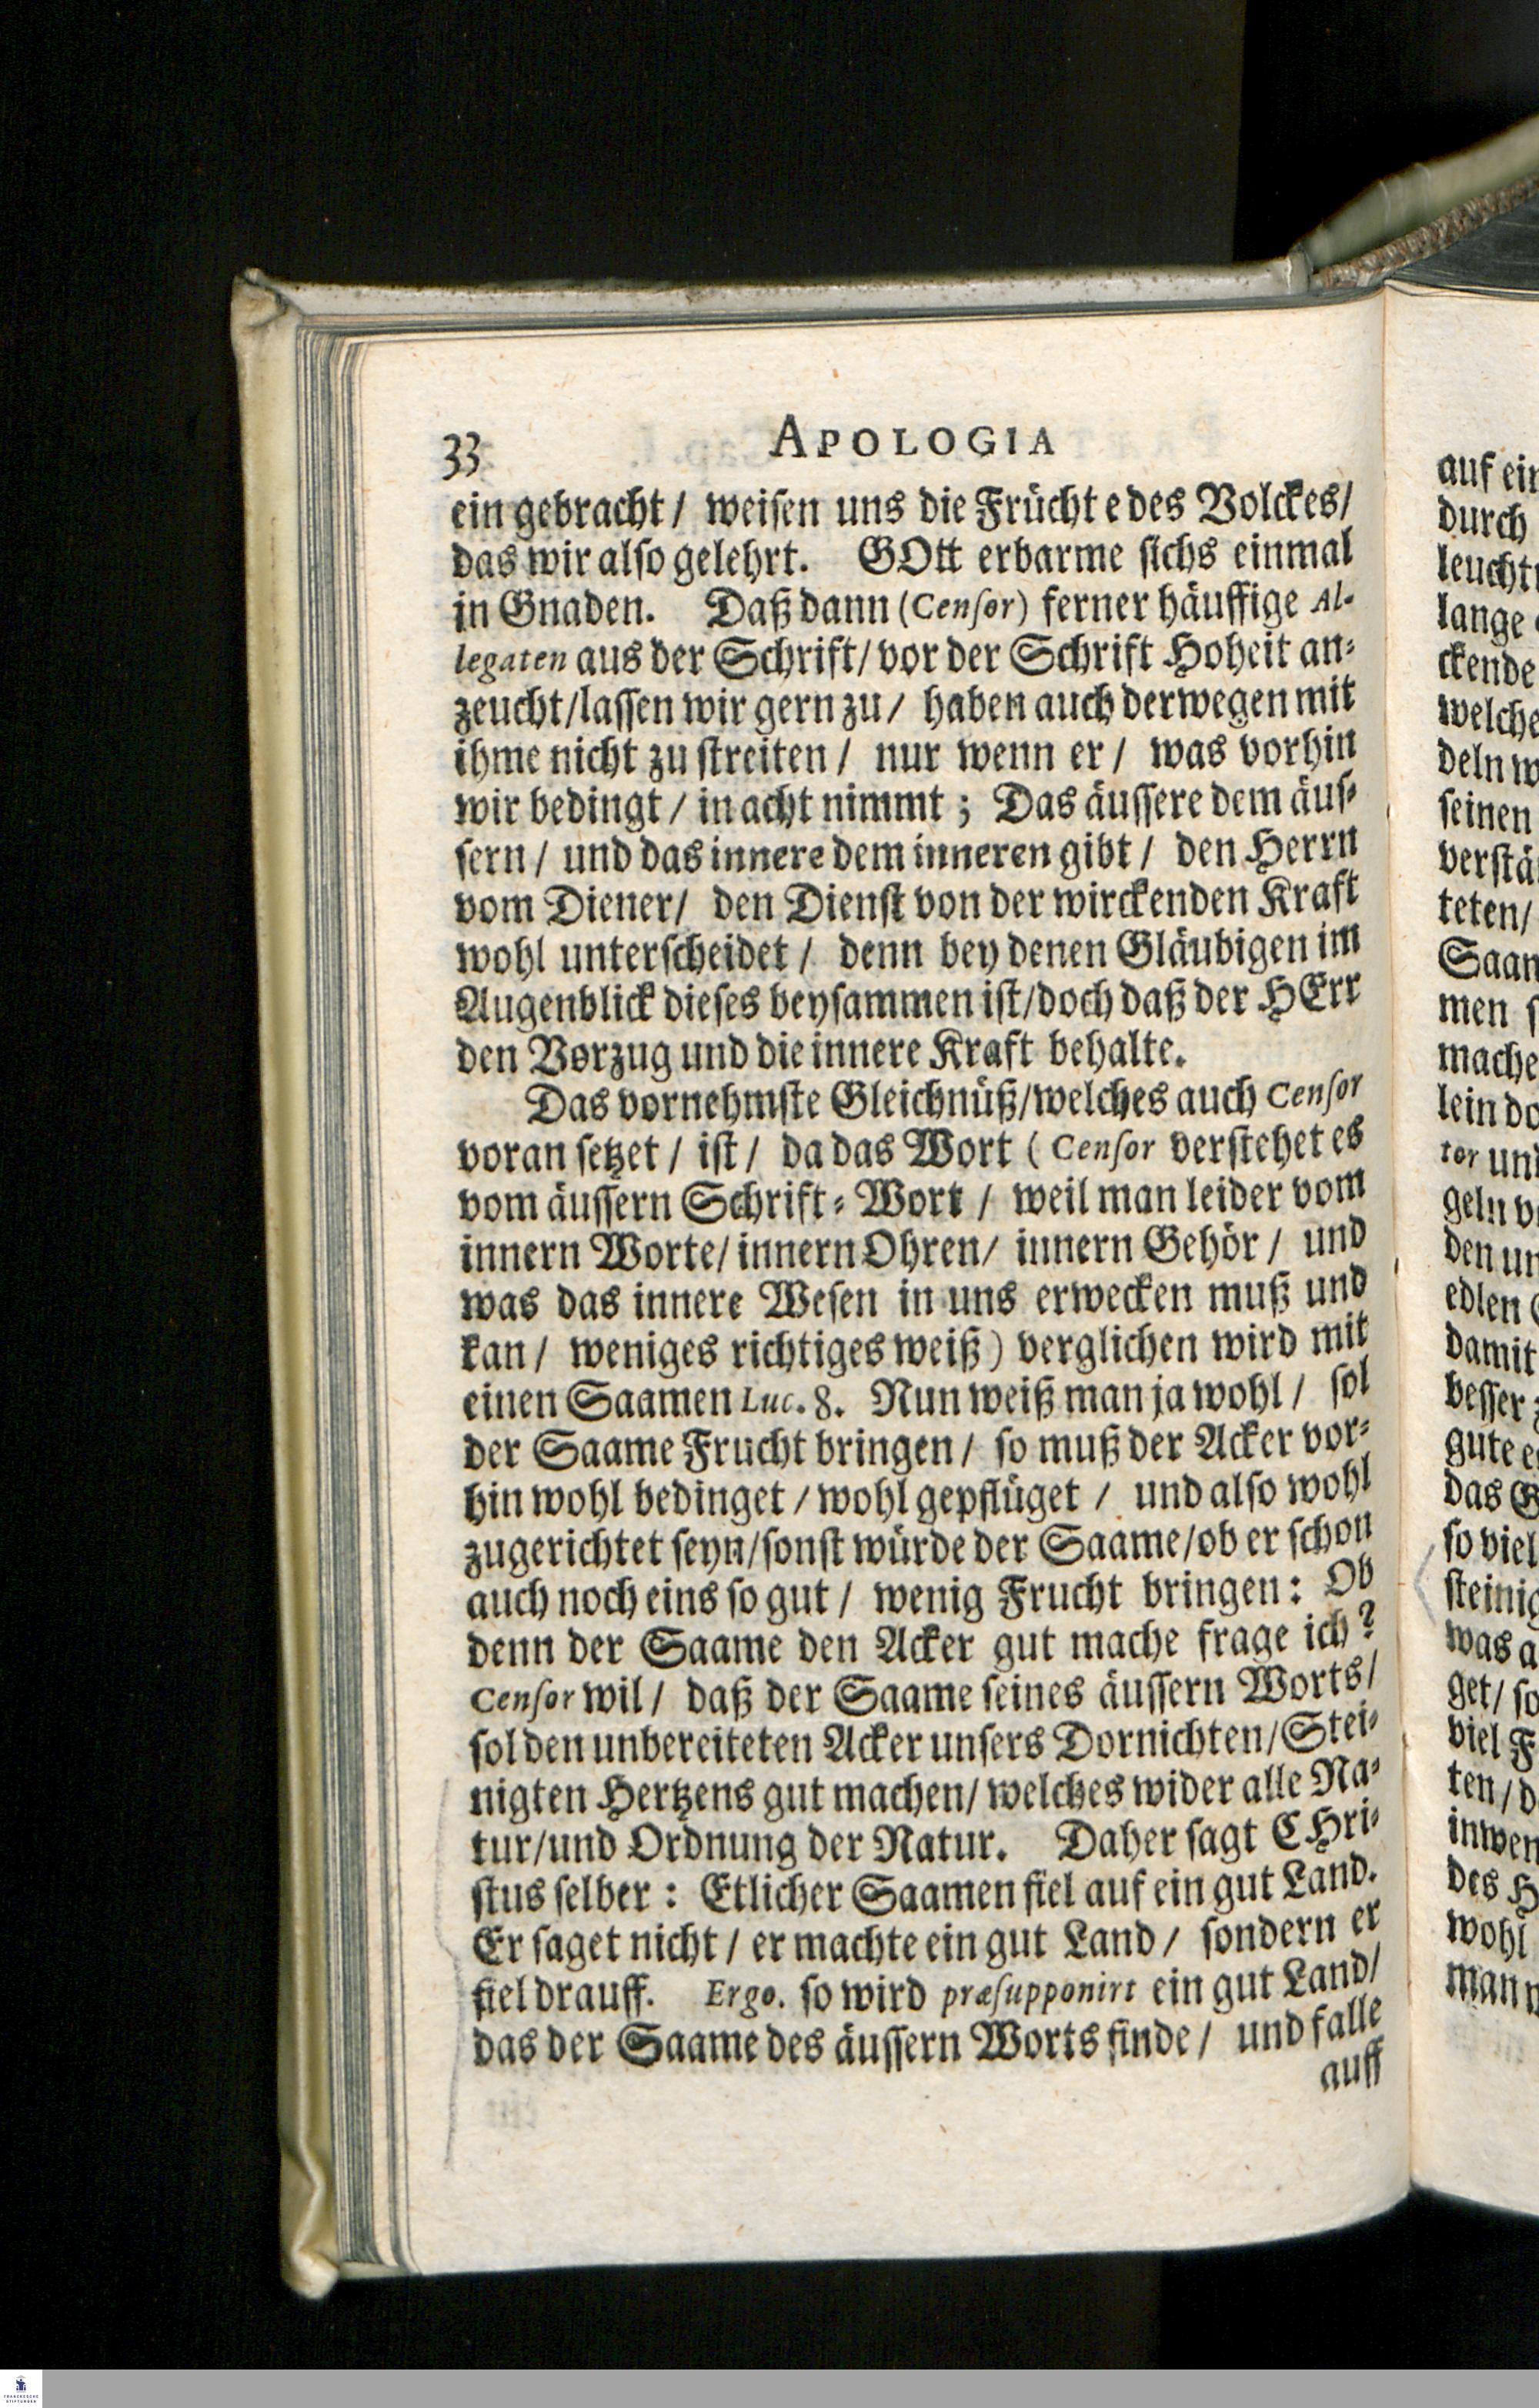 33 APOLOGIA
ein gebracht / weiſen uns die Frücht e des Volckes /
das wir alſo gelehrt. GOtt erbarme ſichs einmal
in Gnaden. Daß dann (Cenſor) ferner häuffige Al-
legaten aus der Schrift / vor der Schrift Hoheit an-
zeucht / laſſen wir gern zu / haben auch derwegen mit
ihme nicht zu ſtreiten / nur wenn er / was vorhin
wir bedingt / in acht nimmt ; Das äuſſere dem äuſ-
ſern / und das innere dem inneren gibt / den Herrn
vom Diener / den Dienſt von der wirckenden Kraft
wohl unterſcheidet / denn bey denen Gläubigen im
Augenblick dieſes beyſammen iſt / doch daß der HErr
den Vorzug und die innere Kraft behalte.
Das vornehmſte Gleichnüß / welches auch Cenſor
voran ſetzet / iſt / da das Wort ( Cenſor verſtehet es
vom äuſſern Schrift-Wort / weil man leider vom
innern Worte / innern Ohren / innern Gehör / und
was das innere Weſen in uns erwecken muß und
kan / weniges richtiges weiß) verglichen wird mit
einen Saamen Luc. 8. Nun weiß man ja wohl / ſol
der Saame Frucht bringen / ſo muß der Acker vor-
hin wohl bedinget / wohl gepflüget / und alſo wohl
zugerichtet ſeyn / ſonſt würde der Saame / ob er ſchon
auch noch eins ſo gut / wenig Frucht bringen: Ob
denn der Saame den Acker gut mache frage ich?
Cenſor wil / daß der Saame ſeines äuſſern Worts /
ſol den unbereiteten Acker unſers Dornichten / Stei-
nigten Hertzens gut machen / welches wider alle Na-
tur / und Ordnung der Natur. Daher ſagt CHri-
ſtus ſelber : Etlicher Saamen fiel auf ein gut Land.
Er ſaget nicht / er machte ein gut Land / ſondern er
fiel drauff. Ergo. ſo wird præſupponirt ein gut Land /
das der Saame des äuſſern Worts finde / und falle
auff
auf ein
durch
lange
ckende
welche
deln w
ſeinen
teten /
men ſ
mache
lein do
tor und
den un
damit
beſſer
gute e
ſo viel
ſteinig
was a
get / ſo
viel F
ten / d
inwen
des H
wohl
man n
FRANCKESCHE
STIFTUNGEN